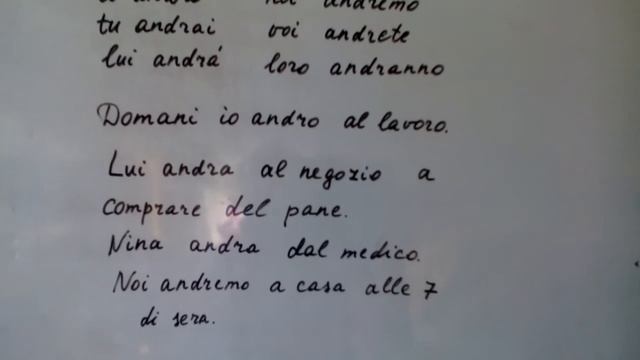 noi andremo
tu andrai voi andrete
lui andrá loro andranno
Domani io andro al lavoro.
Lui andra al negozio a
comprare del pane.
Nina andra dal medico.
Noi andremo a casa alle 7
di sera.